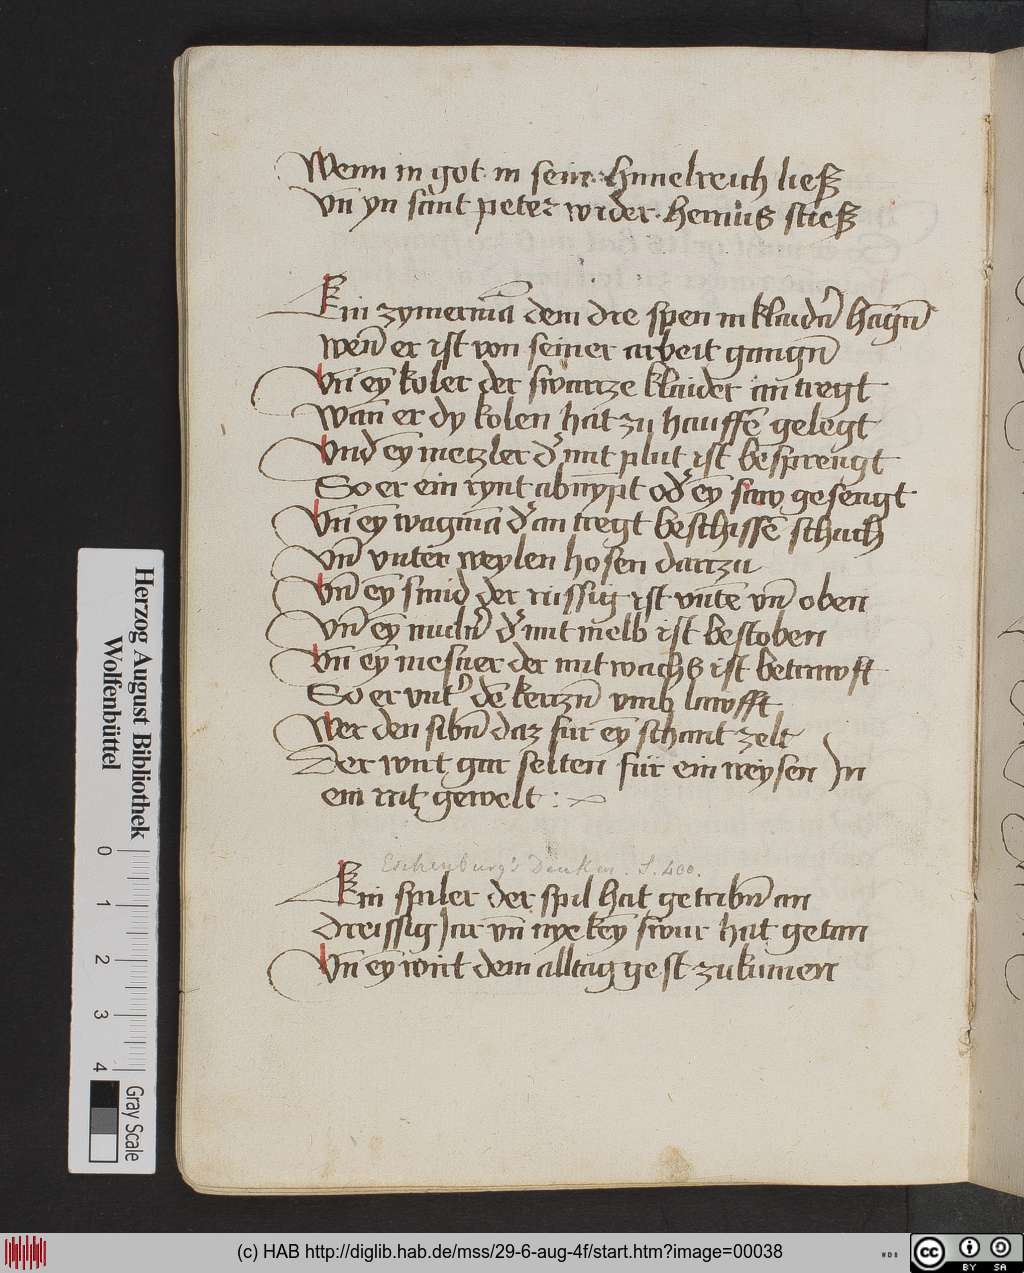 Wenn in got in seim hymelreich ließ
Vñ yn sant peter wider heraus stieß
Ein zymermā dem die spen in klaidn̄ hāgn̄
Wen̄ er ist von seiner arbeit gangn̄
Vñ ey̅ koler der swartze klaider an tregt
Wan̄ er dy kolen hat zu hauffē gelegt
Vnd ey̅ metzler d' mit plut ist besprengt
So er ein rynt abnympt od' ey̅ saw gesengt
Vñ ey̅ wagmā d' an tregt beschissē schuch
Vñ vnter weylen hosen dartzu
Vñ ey̅ smid der russig ist vntē vn̄ oben
Vñ ey̅ muln̄' d' mit melb ist bestoben
Vñ ey̅ mesner der mit wachs ist betrawft
So er vnt' dē kertzn̄ vmb lawfft
Wer den sibn̄ daz für ey̅ schant zelt
Der wirt gar selten für ein weysen In
ein ritz gewelt :
Eschenburg's Denkm. S. 400.
Ein spiler der spil hat getribn̄ an
dreissig Jar vn̄ nye key̅ swur hat getan
Vñ ey̅ wirt dem alltag gest zukumen
Herzog August Bibliothek
Wolfenbüttel
0 1 2 3 4
Gray Scale
(c) HAB http://diglib.hab.de/mss/29-6-aug-4f/start.htm?image=00038
WDB
cc BY SA